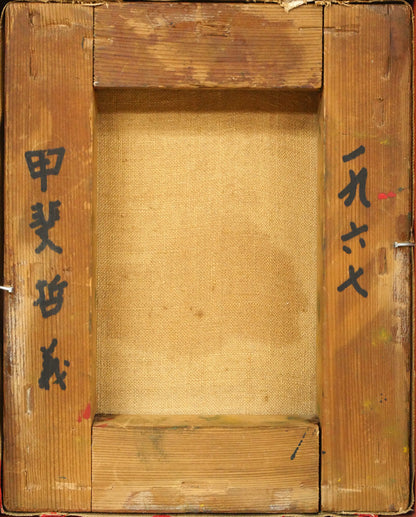 一九六七
甲斐哲義